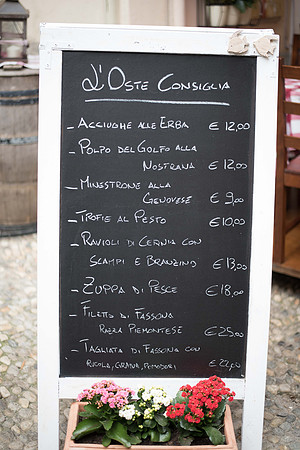 L'Oste Consiglia
- Acciughe alle Erba € 12,00
- Polpo del Golfo alla
Nostrana € 12,00
- Minestrone alla
Genovese € 9,00
- Trofie al Pesto € 10,00
- Ravioli di Cernia con
Scampi e Branzino € 13,00
- Zuppa di Pesce € 18,00
- Filetto di Fassona
Razza Piemontese € 25,00
- Tagliata di Fassona con
Rucola, Grana, Pomodori € 22,00